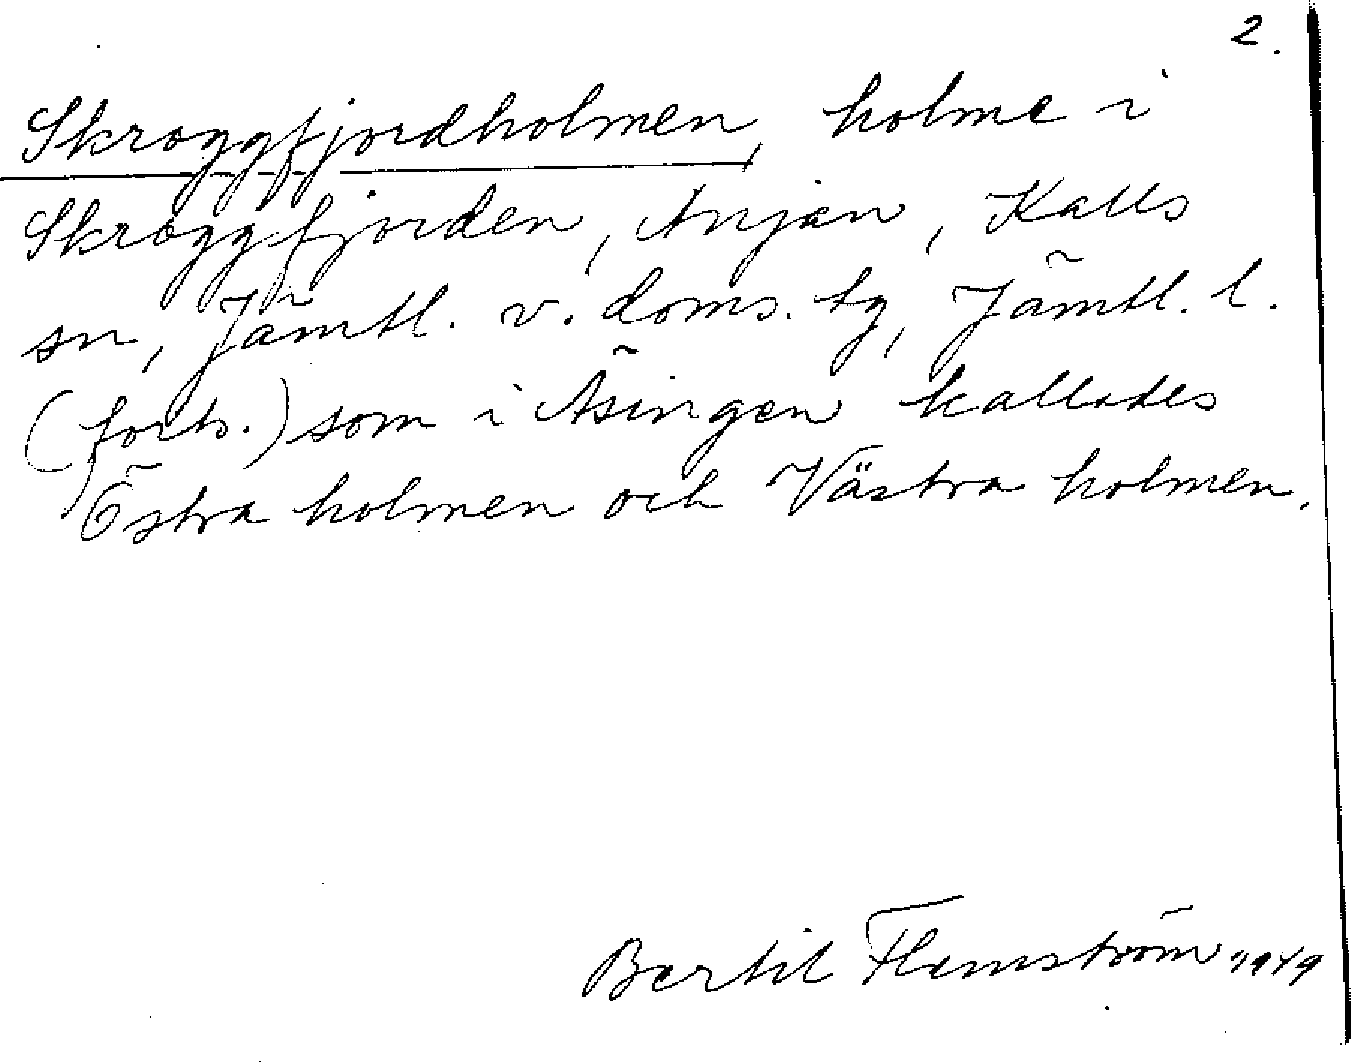 2.
Skroggfjordholmen, holme i
Skroggfjorden, Anjan, Kalls
sn, Jämtl. v. doms. tg, Jämtl. l.
(forts.) som i Äsingen kallades
Östra holmen och Västra holmen.
Bertil Flemström 1949